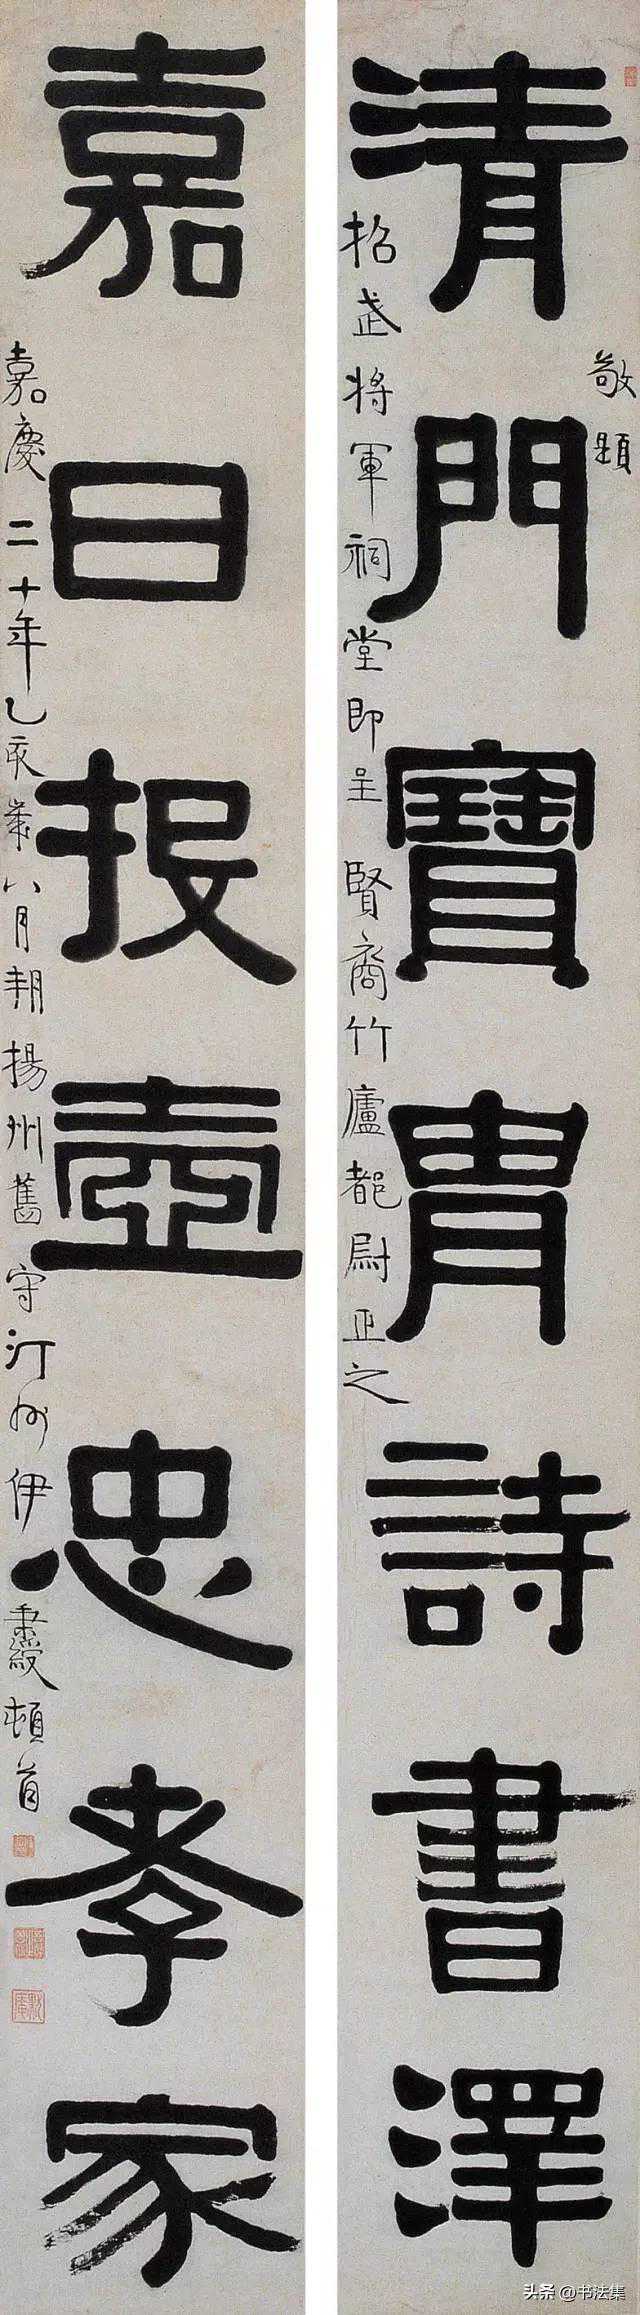 清門寶胄詩書澤
敬題
昭武將軍祠堂即呈賢裔竹廬都尉正之
嘉日投壺忠孝家
嘉慶二十年乙亥歲八月朔揚州舊守汀州伊秉綬頓首
头条 @书法集